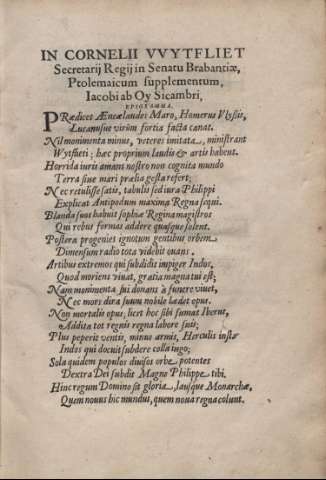 IN CORNELII VVYTFLIET
Secretarij Regij in Senatu Brabantiæ,
Ptolemaicum supplementum,
Iacobi ab Oy Sicambri,
EPIGRAMMA.
PRædicet Æncælaudes Maro, Homerus Vlyssis,
Lucanusue virûm fortia facta canat.
Nil monimenta minus, veteres imitata, ministrant
Wytflieti; hæc proprium laudis & artis habent.
Horrida iuris amans nostro non cognita mundo
Terra siue mari prælia gesta refert;
Nec retulisse satis, tabulis sed iura Philippi
Explicat Antipodum maxima Regna sequi.
Blanda suos habuit sophiæ Regina magistros
Qui rebus formas addere quasque solent.
Postera progenies ignotum gentibus orbem
Dimensum radio tota videbit ouans.
Artibus extremos qui subdidit impiger Indos,
Quod moriens viuat, gratia magna tui est;
Nam monimenta sui donans à funere viuet,
Nec mors dira suum nobile lædet opus.
Non mortalis opus, licet hoc sibi sumat Iberus,
Addita tot regnis regna labore suis;
Plus peperit ventis, minus armis, Herculis instar
Indos qui docuit subdere colla iugo;
Sola quidem populos diuisos orbe potentes
Dextra Dei subdit Magne Philippe tibi.
Hinc regum Domino sit gloria, lausque Monarchæ,
Quem nouus hic mundus, quem noua regna colunt.